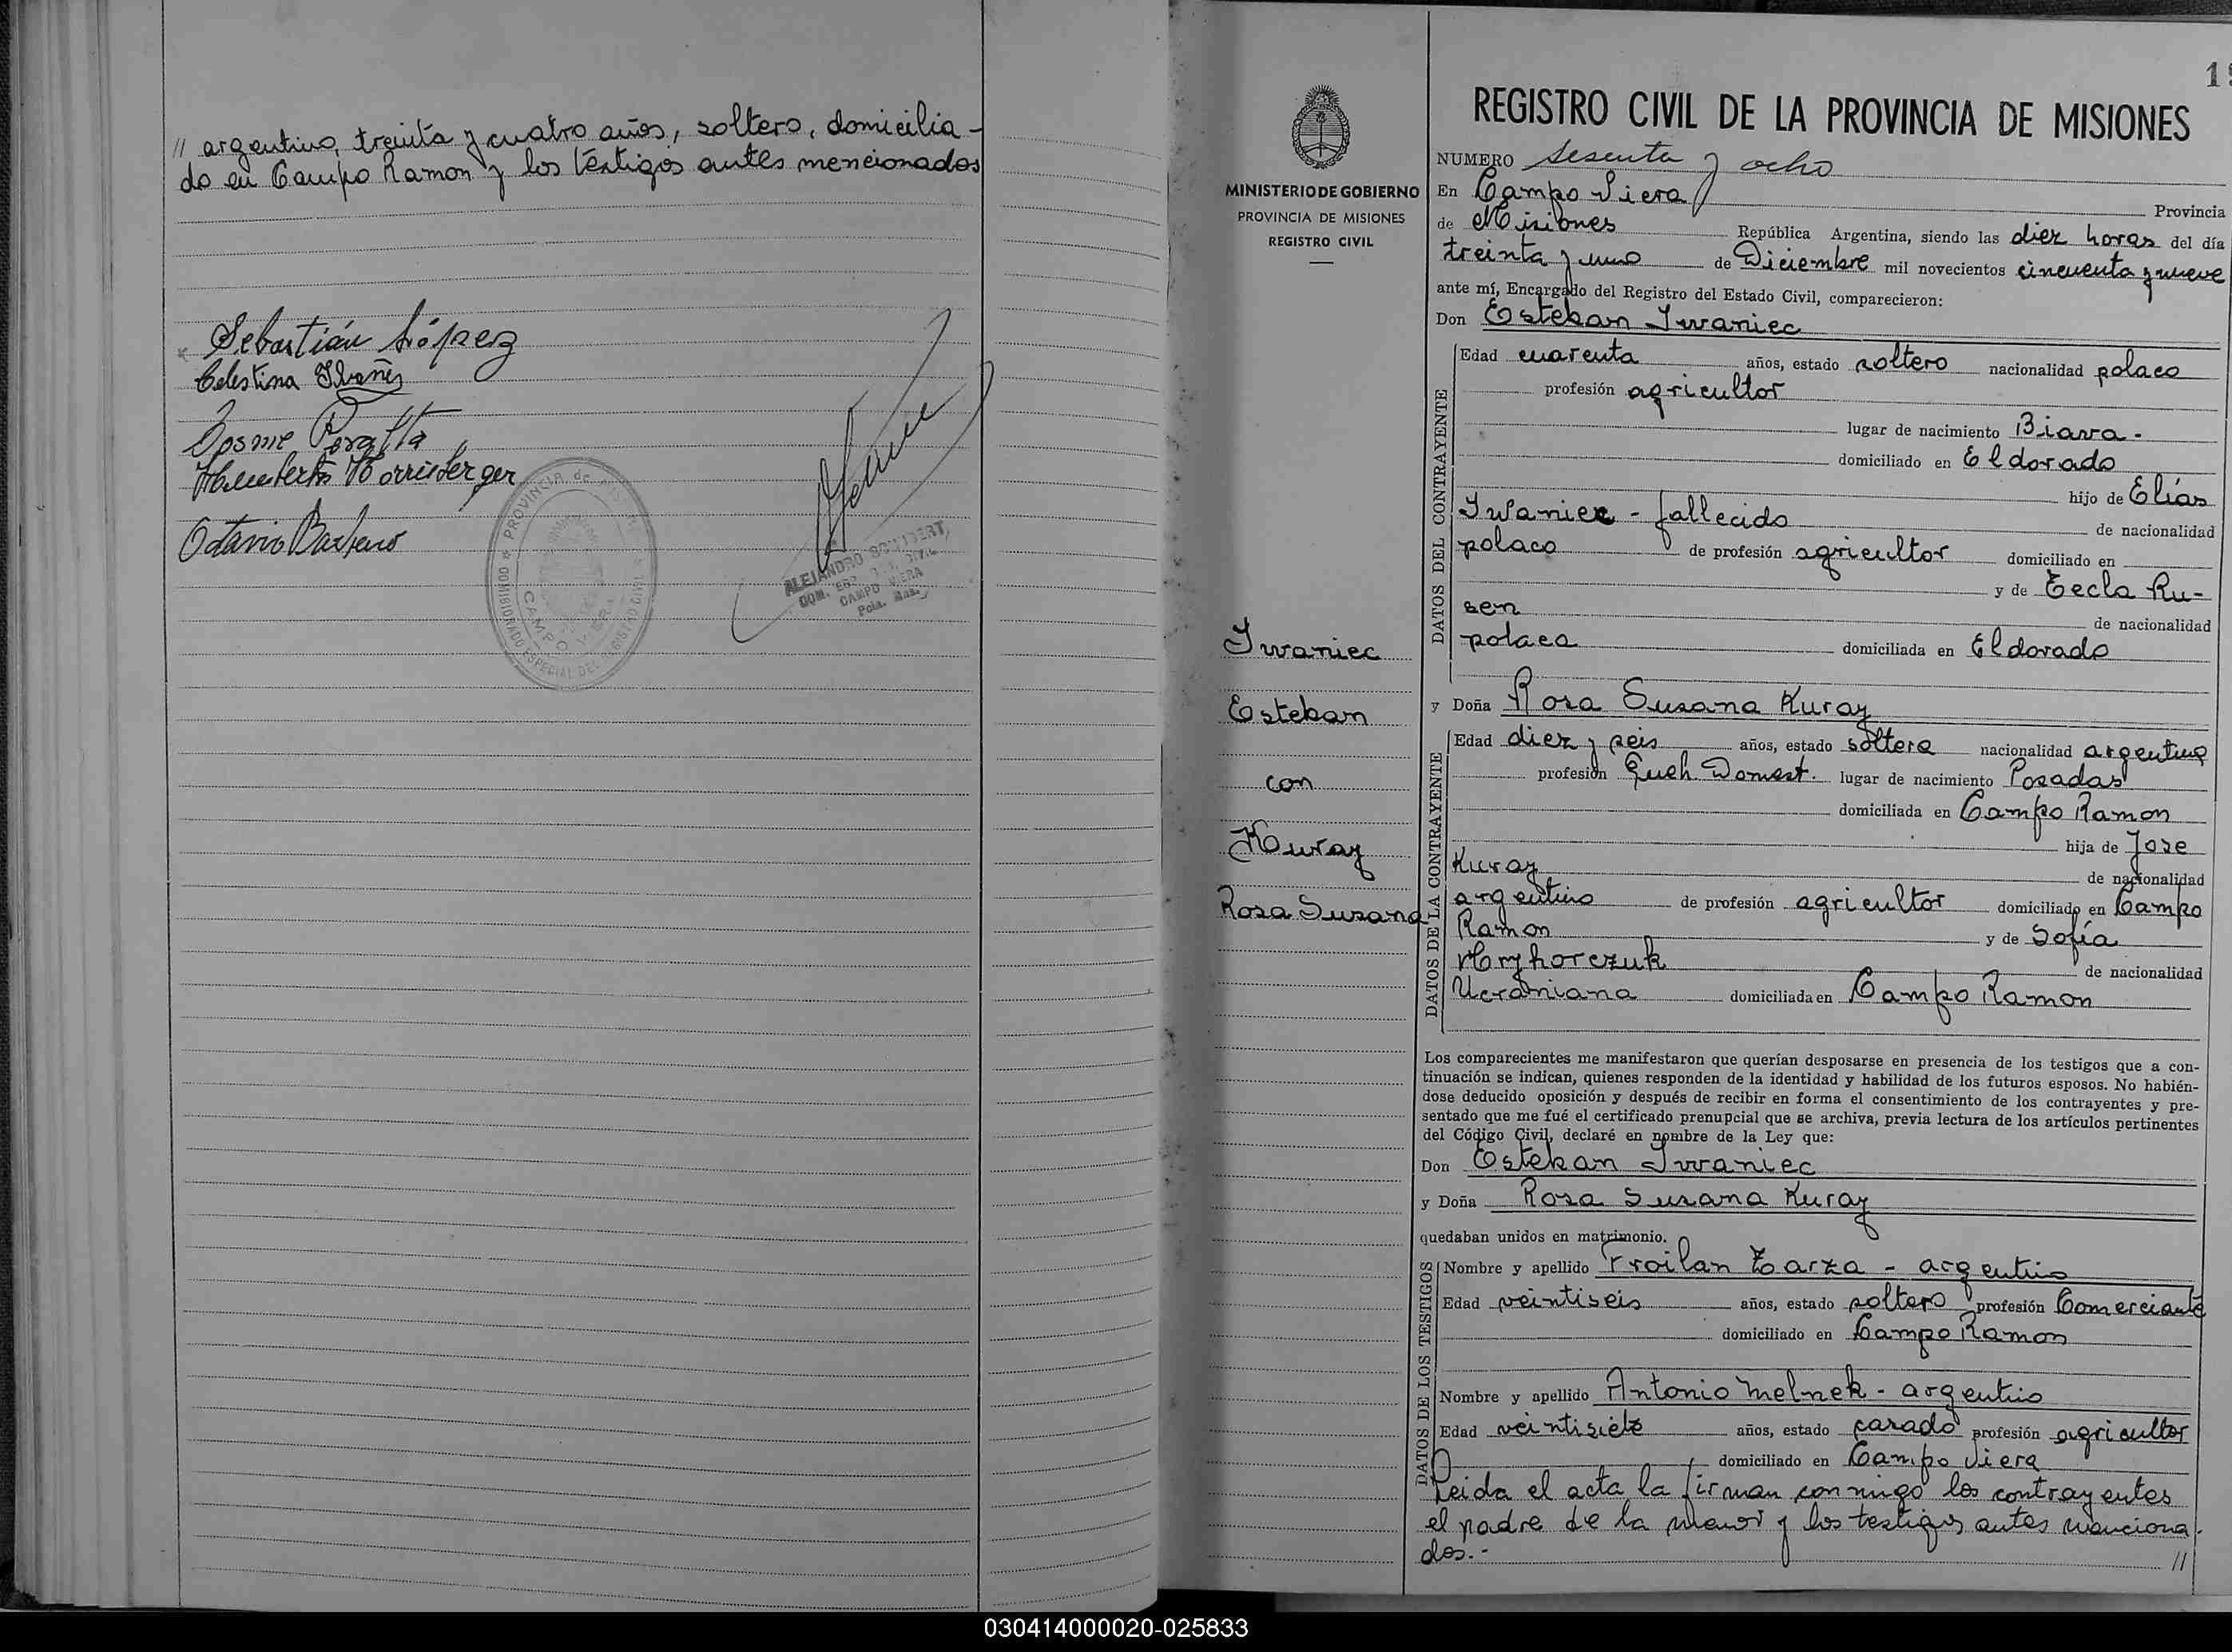 // argentino, treinta y cuatro años, soltero, domicilia-
do en Campo Ramon y los testigos antes mencionados
Sebastián López
Celestina
Cosme Peralta
Octavio
PROVINCIA de
COMISIONADO ESPECIAL DEL REGISTRO CIVIL
CAMPO VIERA
ALEJANDRO
CAMPO VIERA
19
REGISTRO CIVIL DE LA PROVINCIA DE MISIONES
MINISTERIO DE GOBIERNO
PROVINCIA DE MISIONES
REGISTRO CIVIL
NUMERO sesenta y ocho
En Campo Viera Provincia
de Misiones República Argentina, siendo las diez horas del día
treinta y uno de Diciembre mil novecientos cincuenta y nueve
ante mí, Encargado del Registro del Estado Civil, comparecieron:
Don Esteban Iwaniec
DATOS DEL CONTRAYENTE
Edad cuarenta años, estado soltero nacionalidad polaco
profesión agricultor
lugar de nacimiento Biava.-
domiciliado en Eldorado
hijo de Elías
Iwaniec - fallecido de nacionalidad
polaco de profesión agricultor domiciliado en
y de Tecla Ru-
sen de nacionalidad
polaca domiciliada en Eldorado
Iwaniec
Esteban
con
Kuray
Rosa Susana
y Doña Rosa Susana Kuray
DATOS DE LA CONTRAYENTE
Edad diez y seis años, estado soltera nacionalidad argentina
profesión Queh. Domest. lugar de nacimiento Posadas
domiciliada en Campo Ramon
hija de Jose
Kuray de nacionalidad
argentino de profesión agricultor domiciliado en Campo
Ramon y de Sofía
Hryhorczuk de nacionalidad
Ucraniana domiciliada en Campo Ramon
Los comparecientes me manifestaron que querían desposarse en presencia de los testigos que a con-
tinuación se indican, quienes responden de la identidad y habilidad de los futuros esposos. No habién-
dose deducido oposición y después de recibir en forma el consentimiento de los contrayentes y pre-
sentado que me fué el certificado prenupcial que se archiva, previa lectura de los artículos pertinentes
del Código Civil, declaré en nombre de la Ley que:
Don Esteban Iwaniec
y Doña Rosa Susana Kuray
quedaban unidos en matrimonio.
DATOS DE LOS TESTIGOS
Nombre y apellido Froilan Zarza - argentino
Edad veintiseis años, estado soltero profesión Comerciante
domiciliado en Campo Ramon
Nombre y apellido Antonio Melnek - argentino
Edad veintisiete años, estado casado profesión agricultor
domiciliado en Campo Viera
Leida el acta la firman conmigo los contrayentes
el padre de la menor y los testigos antes menciona-
dos.- //
030414000020-025833